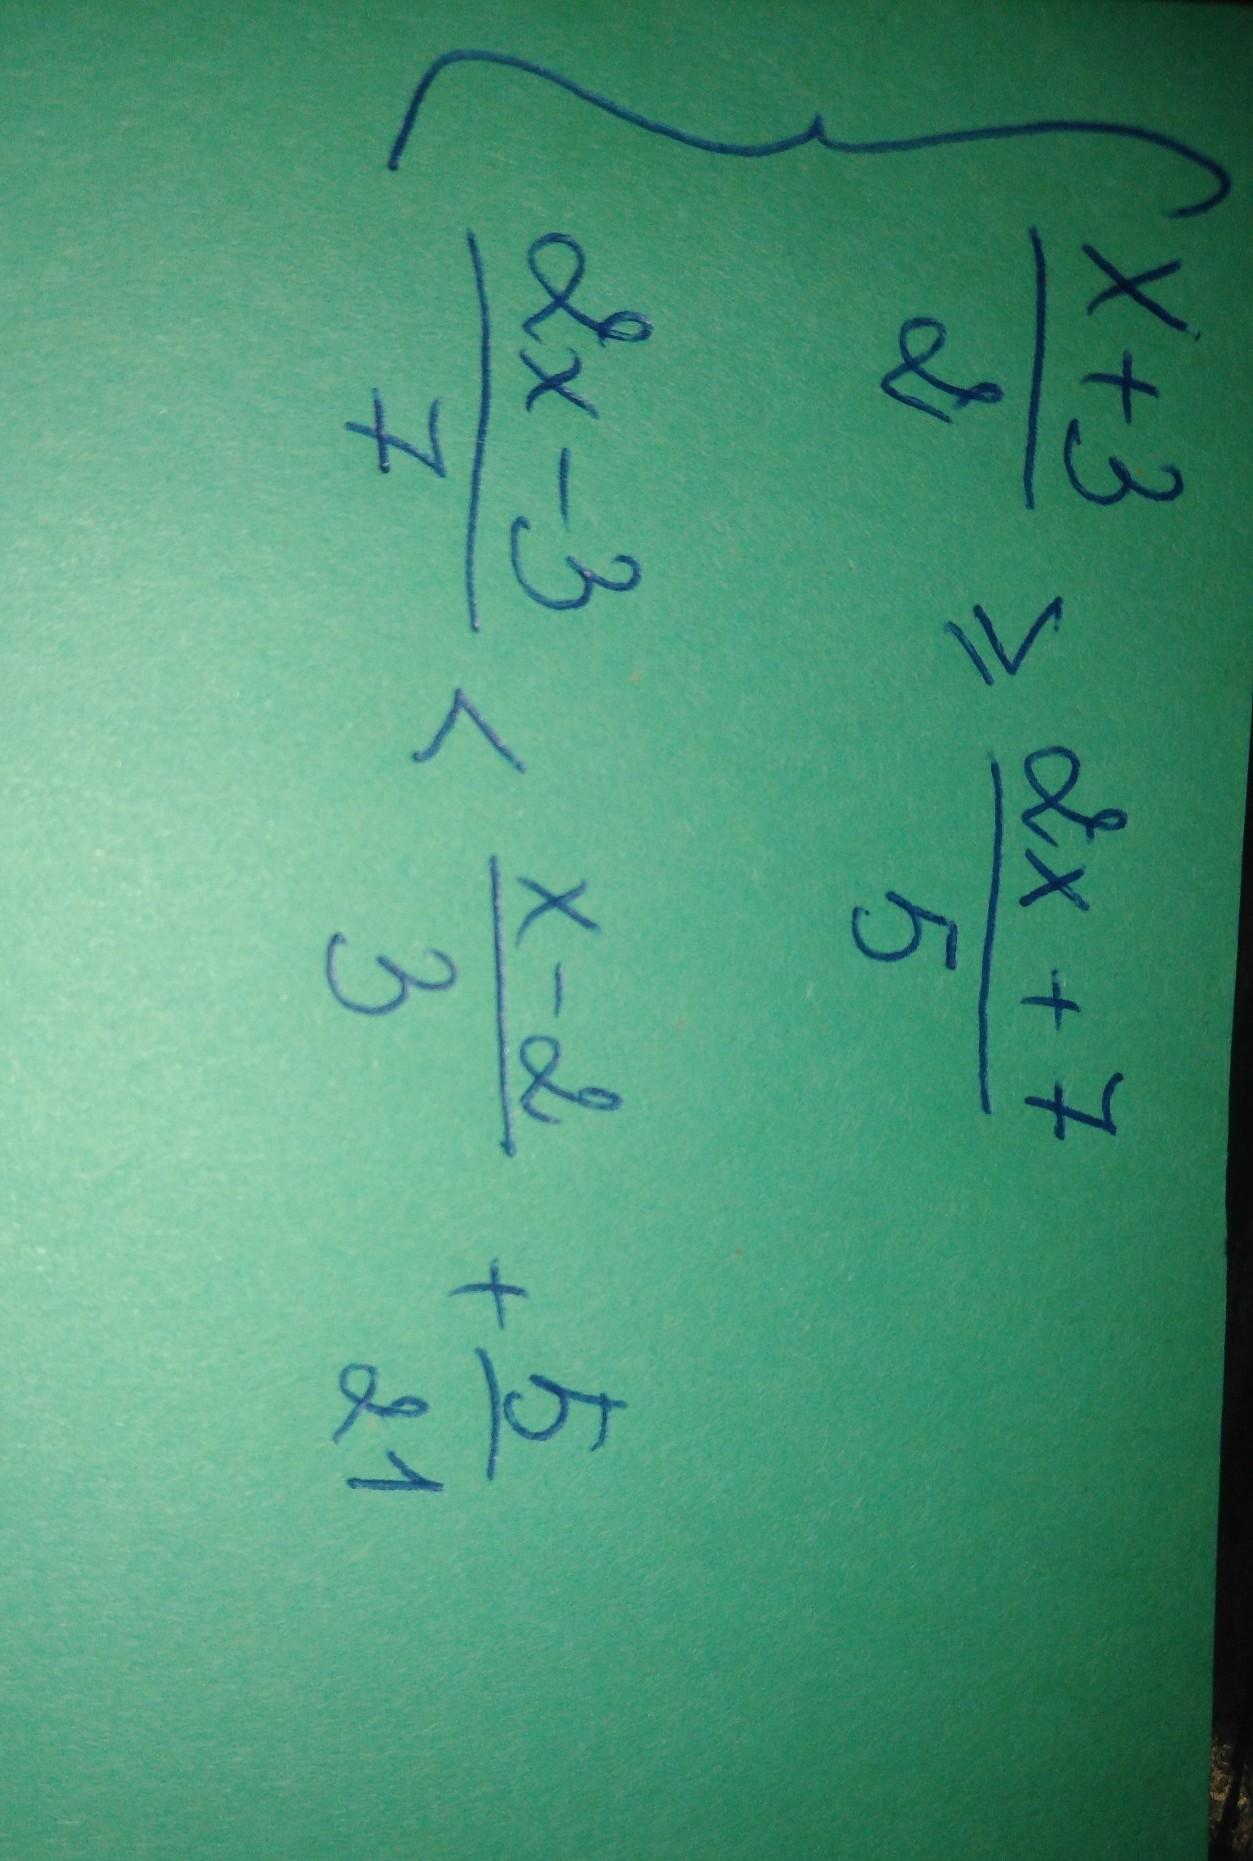 x+3/2 ≥ 2x+7/5
2x-3/7 < x-2/3 + 5/21